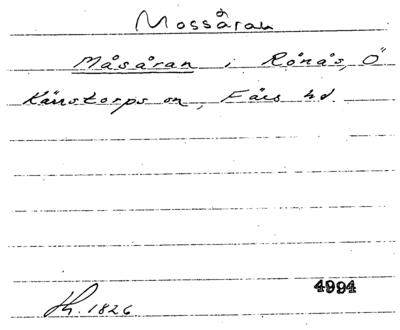 Mossåran
Måsåran i Rönås, Ö
Kärrstorps sn, Färs hd.
4994
1826